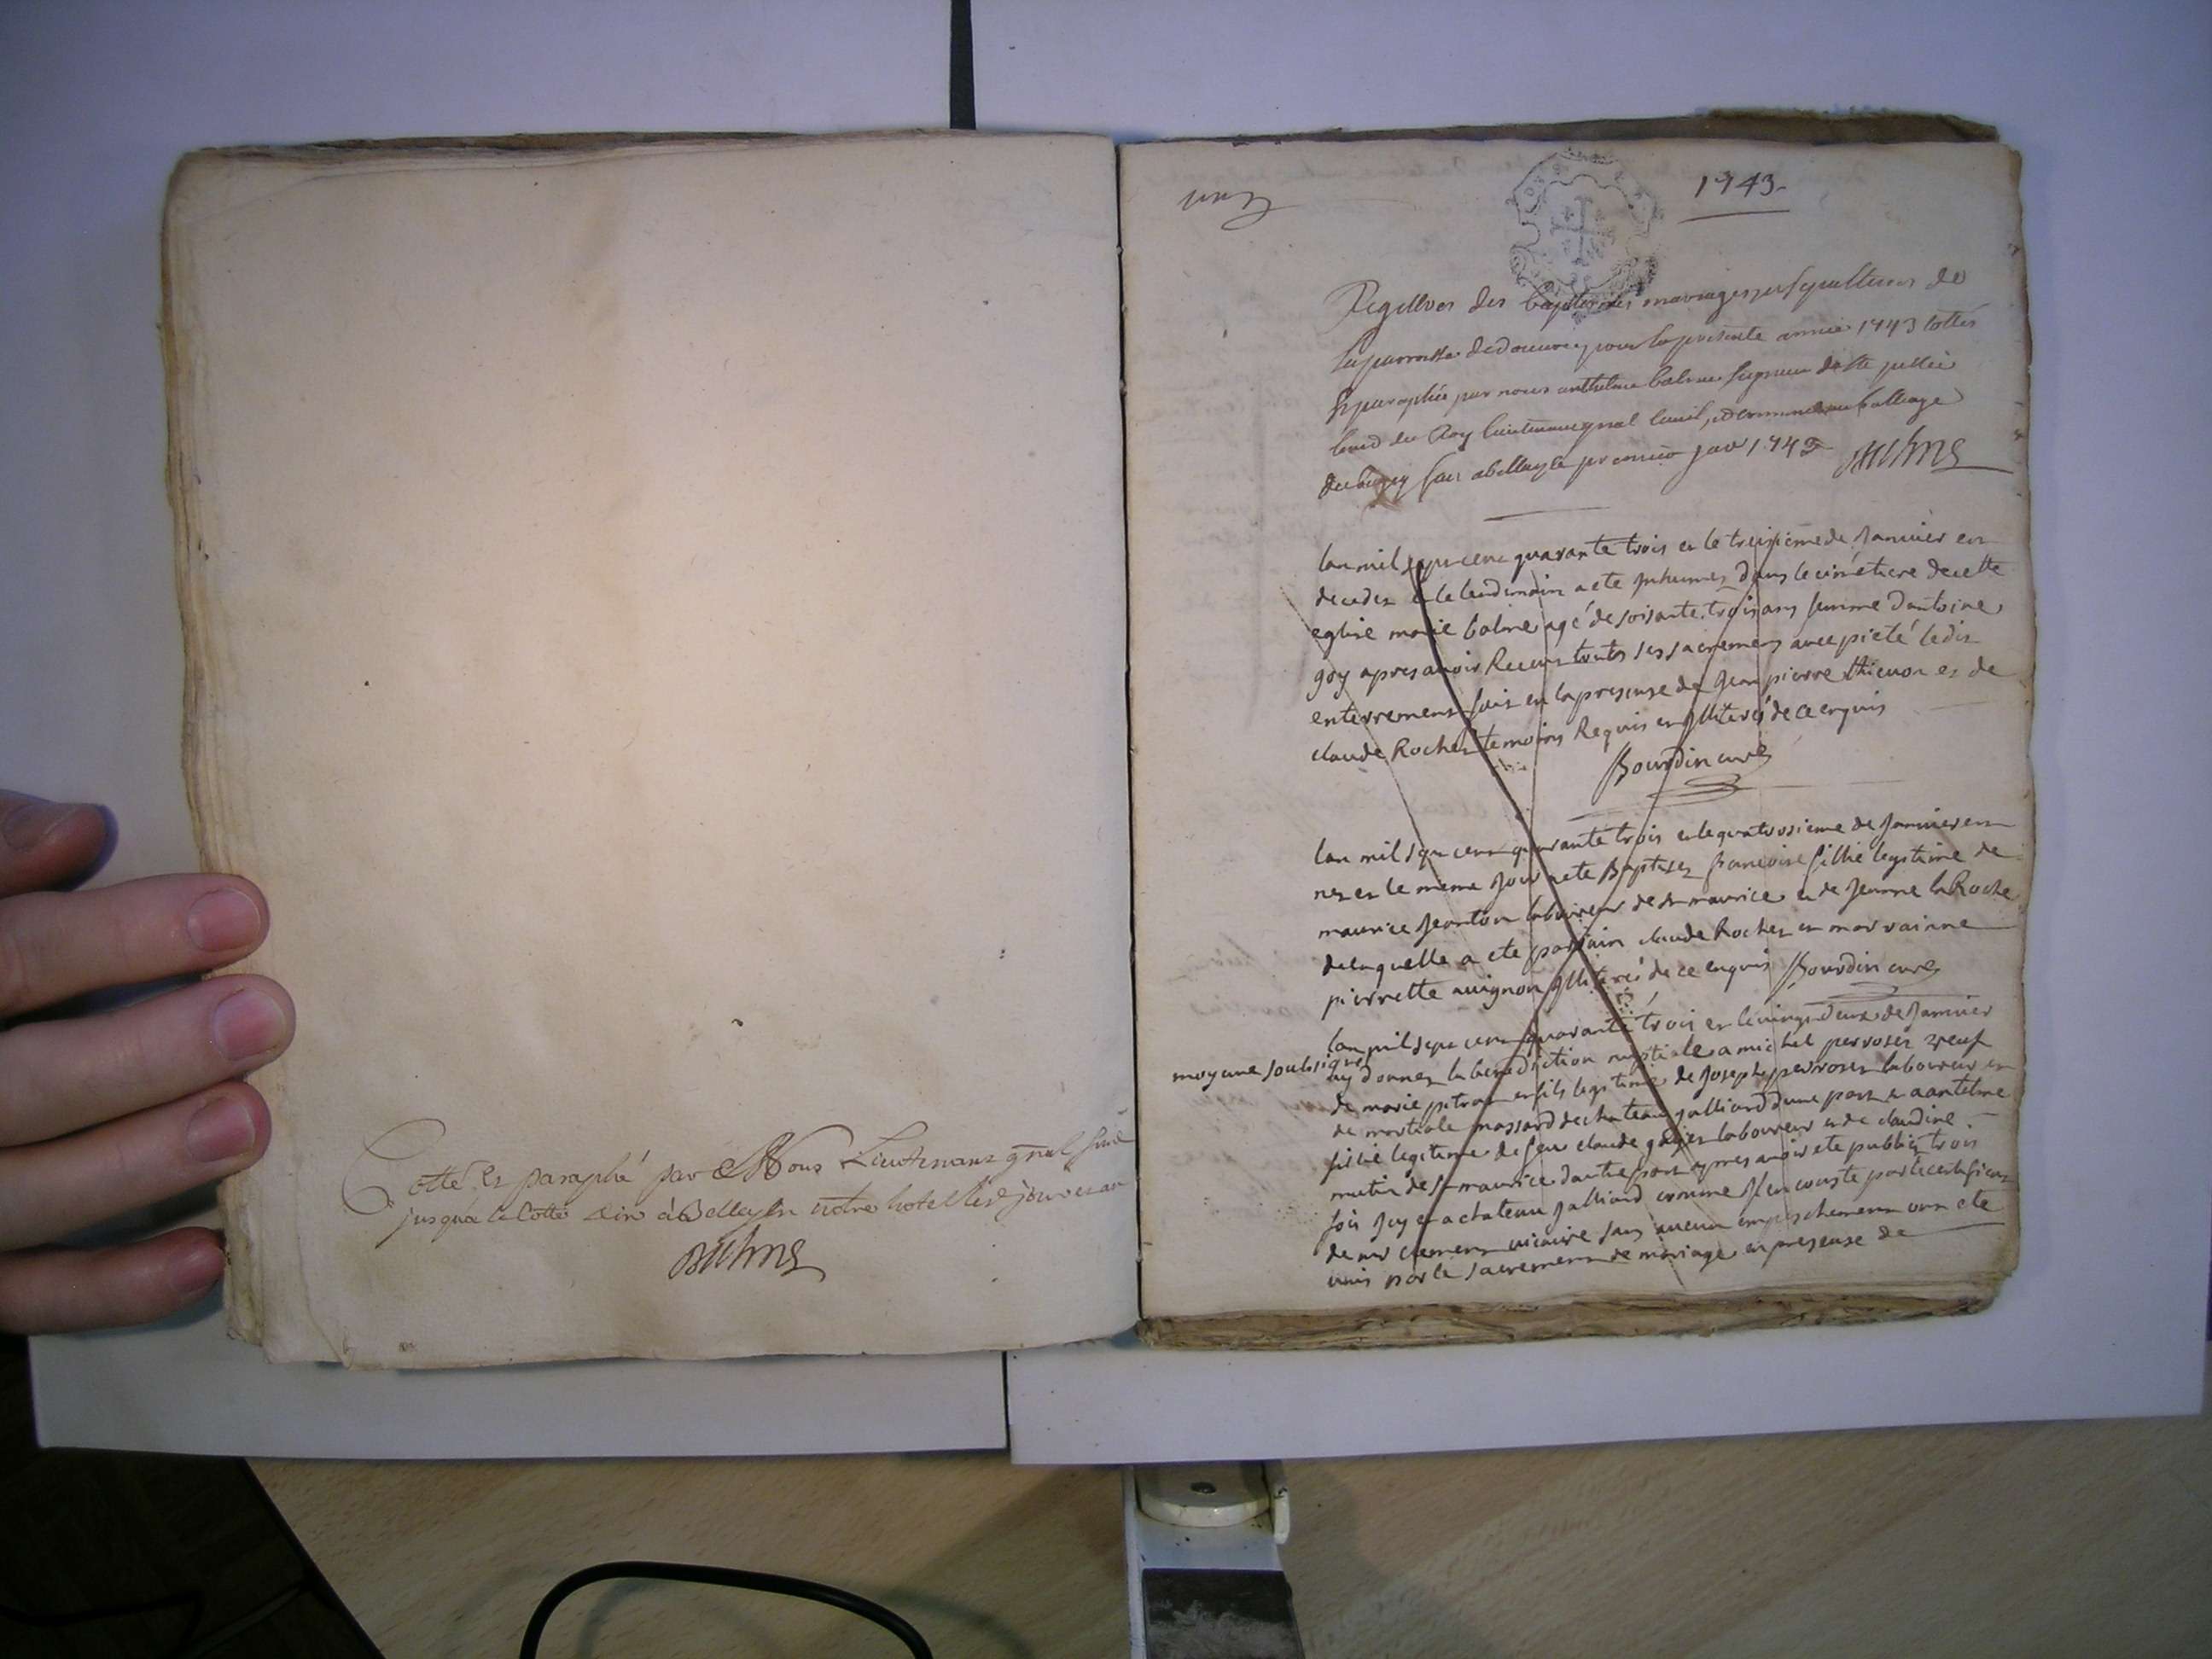 Cotté et paraphé par Nous Lieutenant gnal
jusqua la Cotte à Belley en notre hotel les jour et an
Balme
une
1743
Registres des baptemes mariages et sepultures de
la parroisse de douvre pour la presente année 1743 cottés
et paraphés par nous anthelme balme seigneur de ste jullie
du Roy lieutenant gnal civil, et criminel au balliage
du bugey fait a belley le premier janv 1743 Balme
lan mil sept cent quarante trois et le treisieme de janvier est
decedez et le lendemain a ete inhumez dans le cimetiere de cette
eglise marie balme agé de soisante trois ans femme dantoine
goy apres avoir Receus touts ses sacremens avec pieté le dit
enterrement fait en la presense de jean pierre thievon et de
claude Rochet temoins Requis et illiterés de ce enquis
Bourdin curé
lan mil sept cent quarante trois et le quatorsieme de janvier est
nez et le meme jour a ete Baptisez francoise fillie legitime de
maurice jeanton laboureur de st maurice et de jeanne la Roche
de laquelle a ete parrain claude Rochet et marrainne
pierrette avignon illiterés de ce enquis Bourdin curé
lan mil sept cent quarante trois et le vingt deux de janvier
moy curé soubsigné
ay donnez la benediction nuptiale a michel perroset veuf
de marie et fils legitime de joseph perroset laboureur et
de martiale massard de chateau galliard dune part et a antelme
fillie legitime de feu claude laboureur et de claudine
de st maurice dautre part apres avoir ete publiez trois
fois icy et a chateau galliard comme il en conste par le certificat
de mr clement vicaire sans aucun empeschement ont ete
unis par le sacrement de mariage en presense de